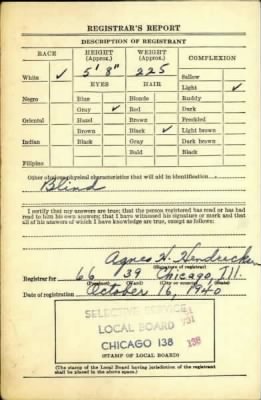 REGISTRAR'S REPORT
DESCRIPTION OF REGISTRANT
RACE HEIGHT (Approx.) WEIGHT (Approx.) COMPLEXION
White ✓ 5' 8" 225 Sallow
EYES HAIR Light ✓
Negro Blue Blonde Ruddy
Gray ✓ Red Dark
Oriental Hazel Brown Freckled
Brown Black ✓ Light brown
Indian Black Gray Dark brown
Bald Black
Filipino
Other obvious physical characteristics that will aid in identification
Blind
I certify that my answers are true; that the person registered has read or has had
read to him his own answers; that I have witnessed his signature or mark and that
all of his answers of which I have knowledge are true, except as follows:
Agnes H. Hendricken
(Signature of registrar)
Registrar for 66 39 Chicago, Ill.
(Precinct) (Ward) (City or county) (State)
Date of registration October 16, 1940
SELECTIVE SERVICE
LOCAL BOARD
CHICAGO 138 138
(STAMP OF LOCAL BOARD)
(The stamp of the Local Board having jurisdiction of the registrant
shall be placed in the above space.)